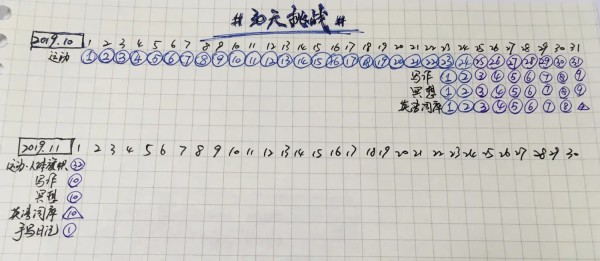 #30天挑战#
2019.10 1 2 3 4 5 6 7 8 9 10 11 12 13 14 15 16 17 18 19 20 21 22 23 24 25 26 27 28 29 30 31
运动 1 2 3 4 5 6 7 8 9 10 11 12 13 14 15 16 17 18 19 20 21 22 23 24 25 26 27 28 29 30 31
写作 1 2 3 4 5 6 7 8 9
冥想 1 2 3 4 5 6 7 8 9
英语词库 1 2 3 4 5 6 7 8
2019.11 1 2 3 4 5 6 7 8 9 10 11 12 13 14 15 16 17 18 19 20 21 22 23 24 25 26 27 28 29 30
运动·人体 32
写作 10
冥想 10
英语词库 10
手写日记 1